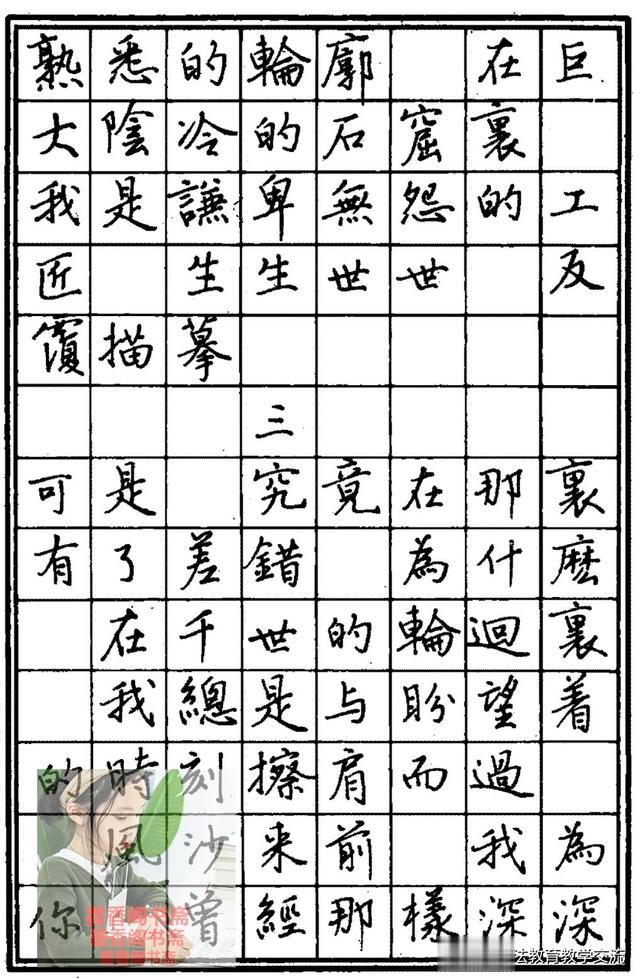 熟悉的輪廓　在巨
大陰冷的石窟裏
我是謙卑無怨的工
匠　生生世世　反
覆描摹
三
可是　究竟在那裏
有了差錯　為什麽
在千世的輪迴裏
我總是与盼望着
的時刻擦肩而過
風沙来前　我為
你　曾經那樣深深
法教育教学交流